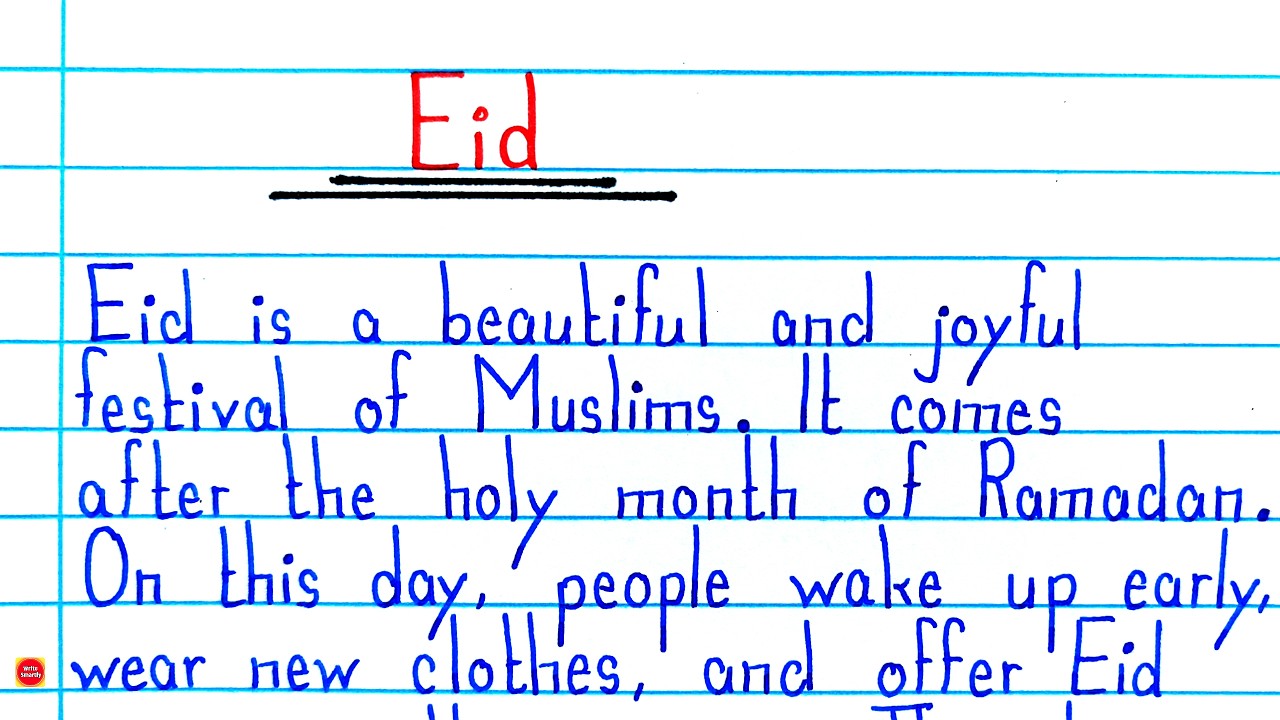 Eid
Eid is a beautiful and joyful
festival of Muslims. It comes
after the holy month of Ramadan.
On this day, people wake up early,
wear new clothes, and offer Eid
Write
Smartly